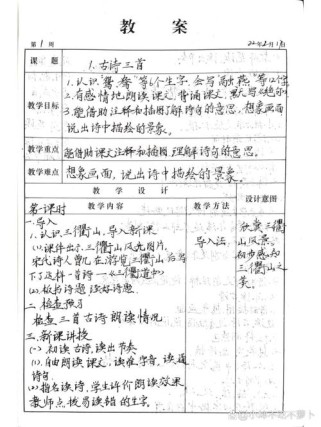 教 案
第 1 周 22年2月1日
课 题 1.古诗三首
教学目标
1.认识“鸳、鸯”等6个生字,会写“融、燕”等12个字。
2.有感情地朗读课文,背诵课文,默写《绝句》
3.能借助注释和插图了解诗句的意思,想象画面
说出诗中描绘的景象。
教学重点 能借助课文注释和插图理解诗句的意思。
教学难点 想象画面,说出诗中描绘的景象。
教 学 设 计
教学内容 教学方法 设计意图
第一课时
一.导入
1.认识三衢山,导入新课
(1)课件出示三衢山风光图片。
宋代诗人曾几在游览三衢山后写
下了这样一首诗—《三衢道中》
(2)板书诗题,读好诗题
二.检查预习
检查三首古诗朗读情况
三.新课讲授
(一)初读古诗,读出节奏
(1)自由朗读课文,读准字音,读通
诗句。
(2)指名读诗,学生评价朗读效果,
教师点拨易读错的生字。
导入法
欣赏三衢
山风景。
初步感知
三衢山之
美。